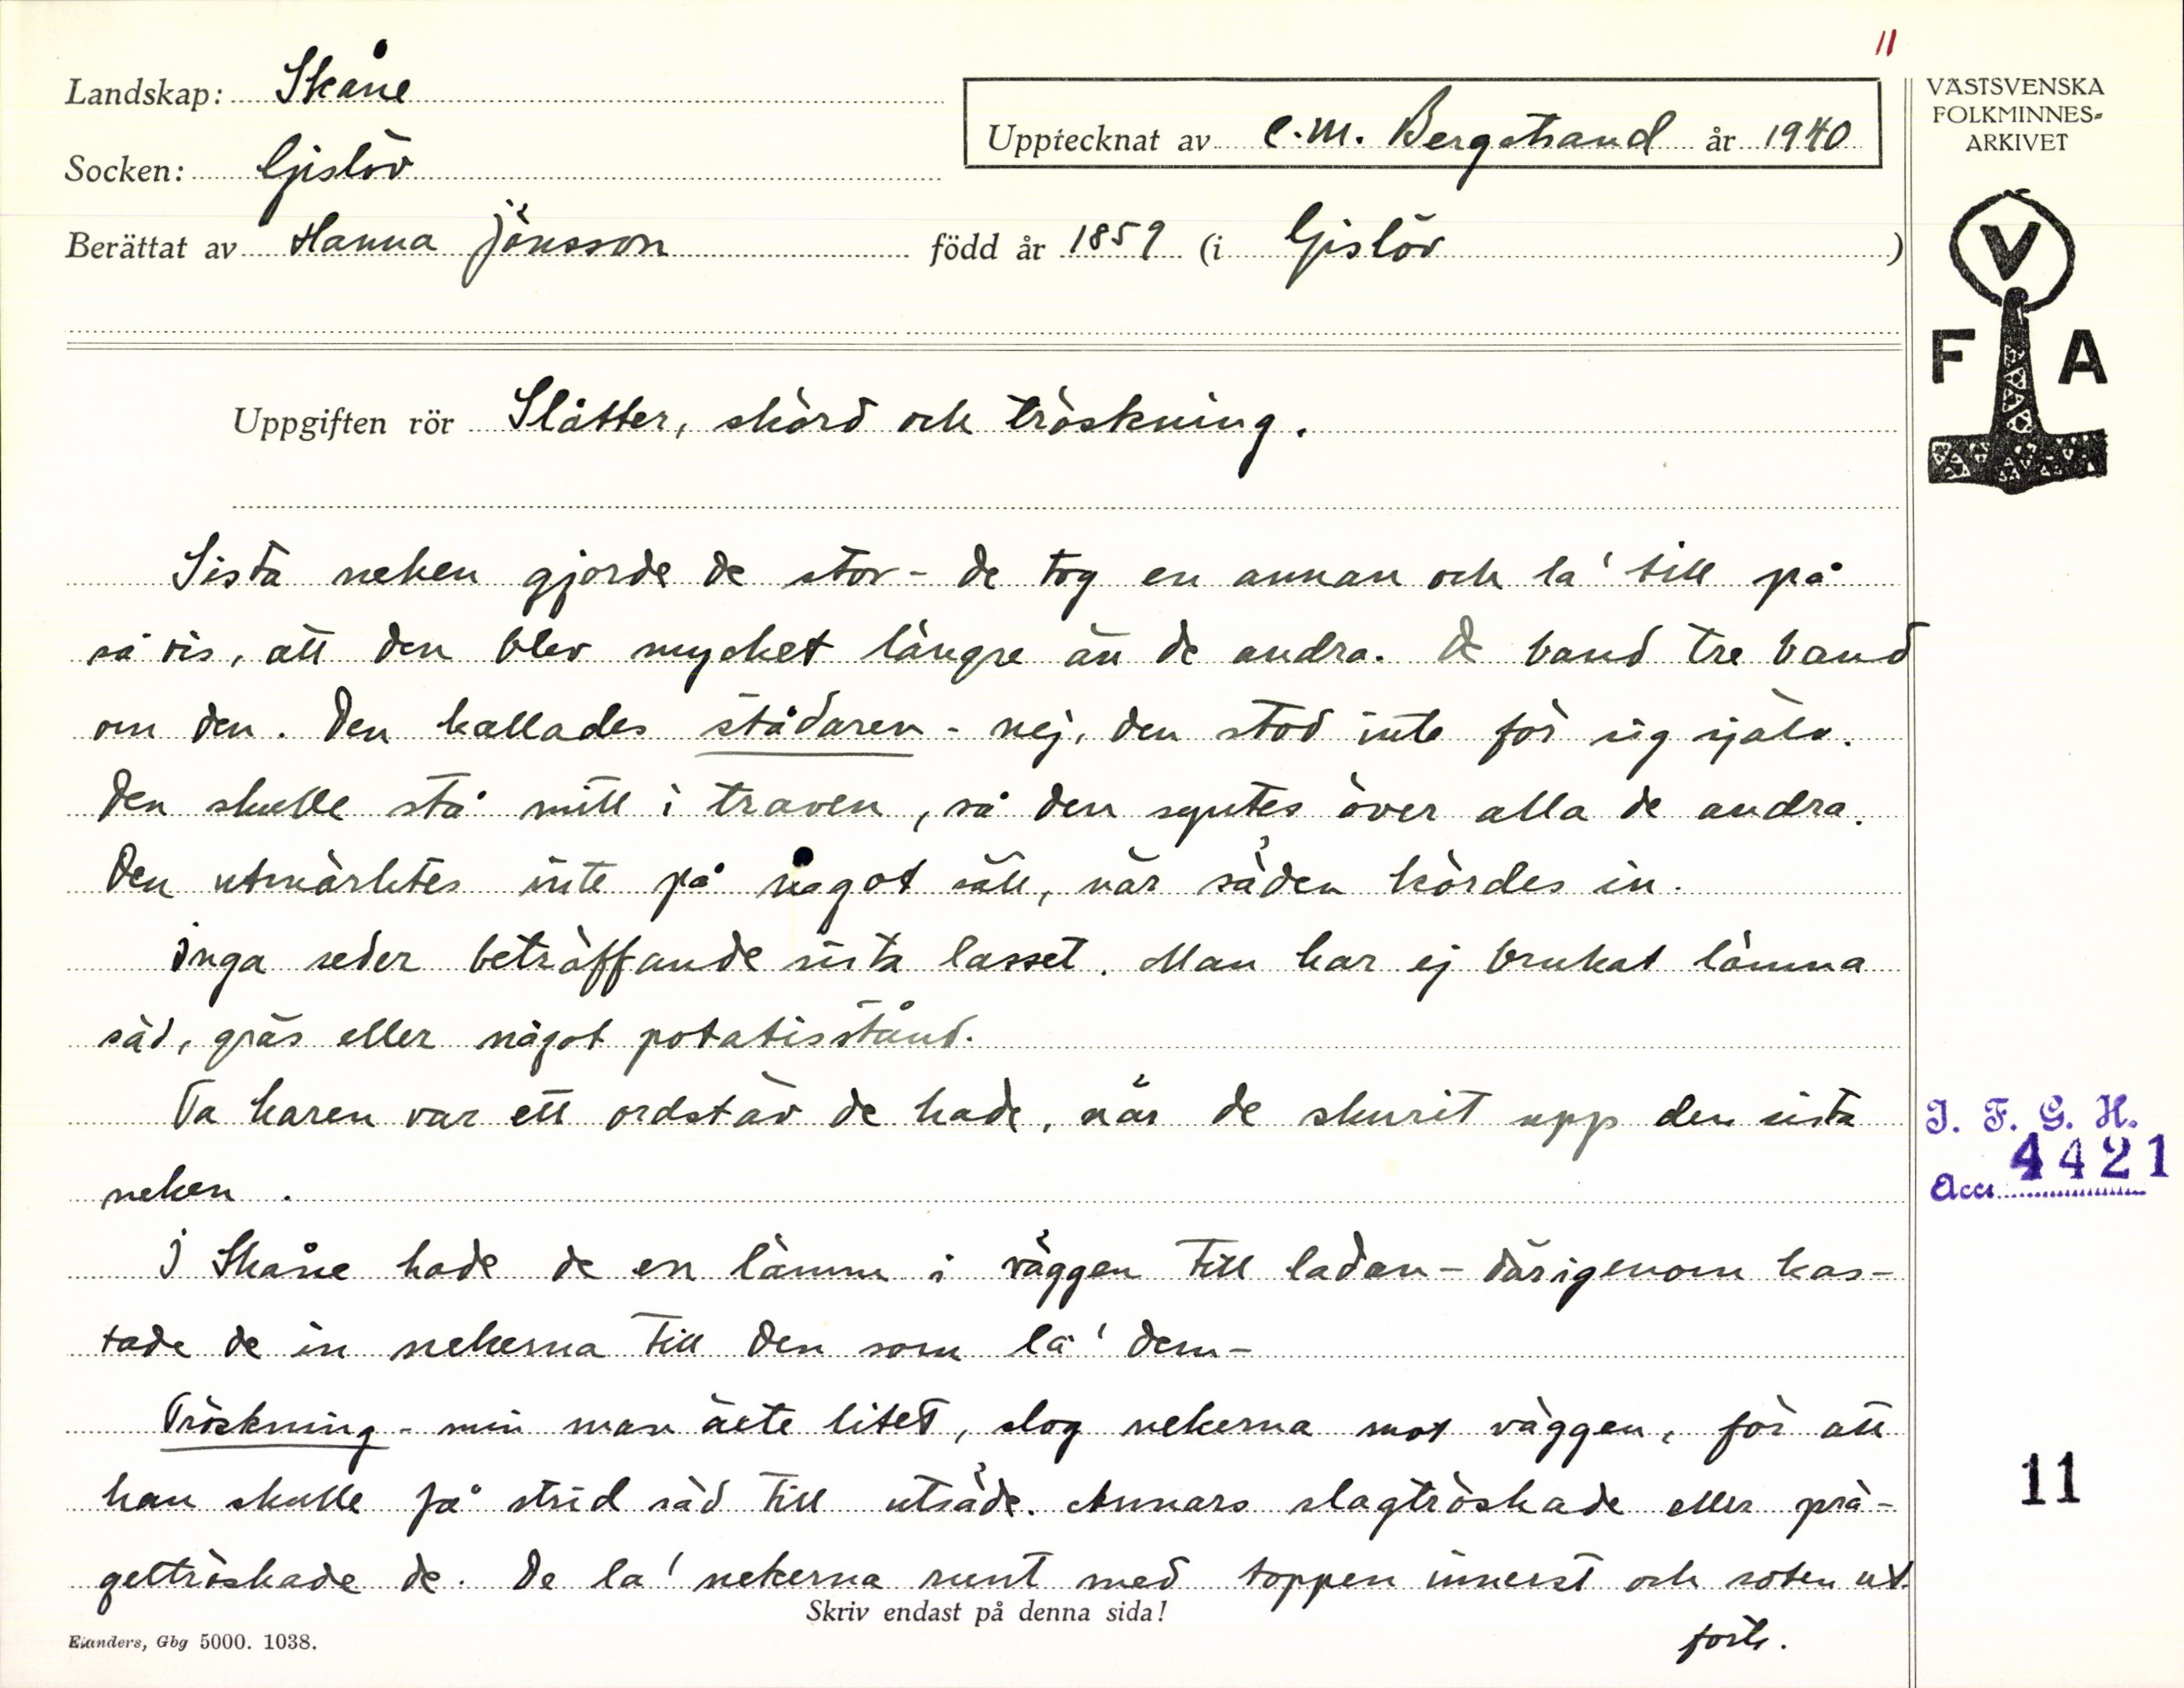 11
Landskap: Skåne
Upptecknat av C.M. Bergstrand år 1940
Socken: Gislöv
Berättat av Hanna Jönsson född år 1859 (i Gislöv)
VÄSTSVENSKA
FOLKMINNES-
ARKIVET
V
F A
Uppgiften rör Slåtter, skörd och tröskning.
Sista neken gjorde de stor - de tog en annan och la' till på
så vis, att den blev mycket längre än de andra. De band tre band
om den. Den kallades städaren - nej, den stod inte för sig själv.
Den skulle stå mitt i traven, så den syntes över alla de andra.
Den utmärktes inte på något sätt, när säden kördes in.
Inga seder beträffande sista lasset. Man har ej brukat lämna
säd, gräs eller något potatisstånd.
Ta haren var ett ordstäv de hade, när de skurit upp den sista
neken.
I Skåne hade de en lämm i väggen till ladan - därigenom kas-
tade de in nekerna till den som la' dem -
Tröskning - min man äste litet, slog nekerna mot väggen, för att
han skulle få strid säd till utsäde. Annars slagtröskade eller prä-
geltröskade de. De la' nekerna runt med toppen innerst och roten ut.
forts.
J. F. G. H.
Acc. 4421
11
Skriv endast på denna sida!
Elanders, Gbg 5000. 1038.